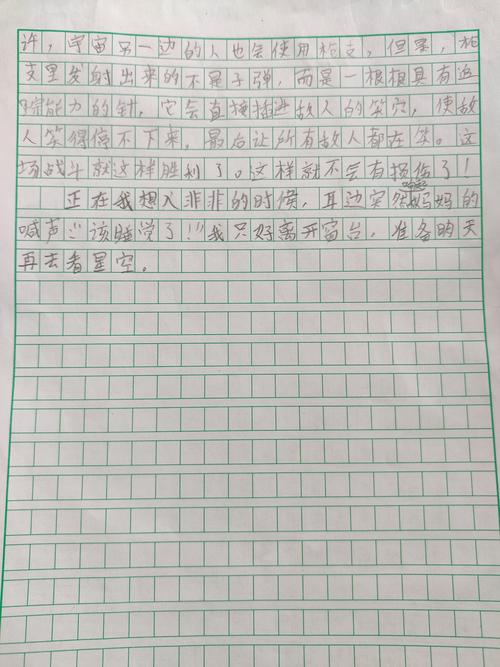 许，宇宙另一边的人也会使用枪支，但是，枪
支里发射出来的不是子弹，而是一根根具有追
踪能力的针，它会直接插进敌人的笑穴，使敌
人笑得停不下来，最后让所有敌人都在笑。这
场战斗就这样胜利了。这样就不会有损伤了！
正在我想入非非的时候，耳边突然响起妈妈的
喊声："该睡觉了！"我只好离开窗台，准备明天
再去看星空。